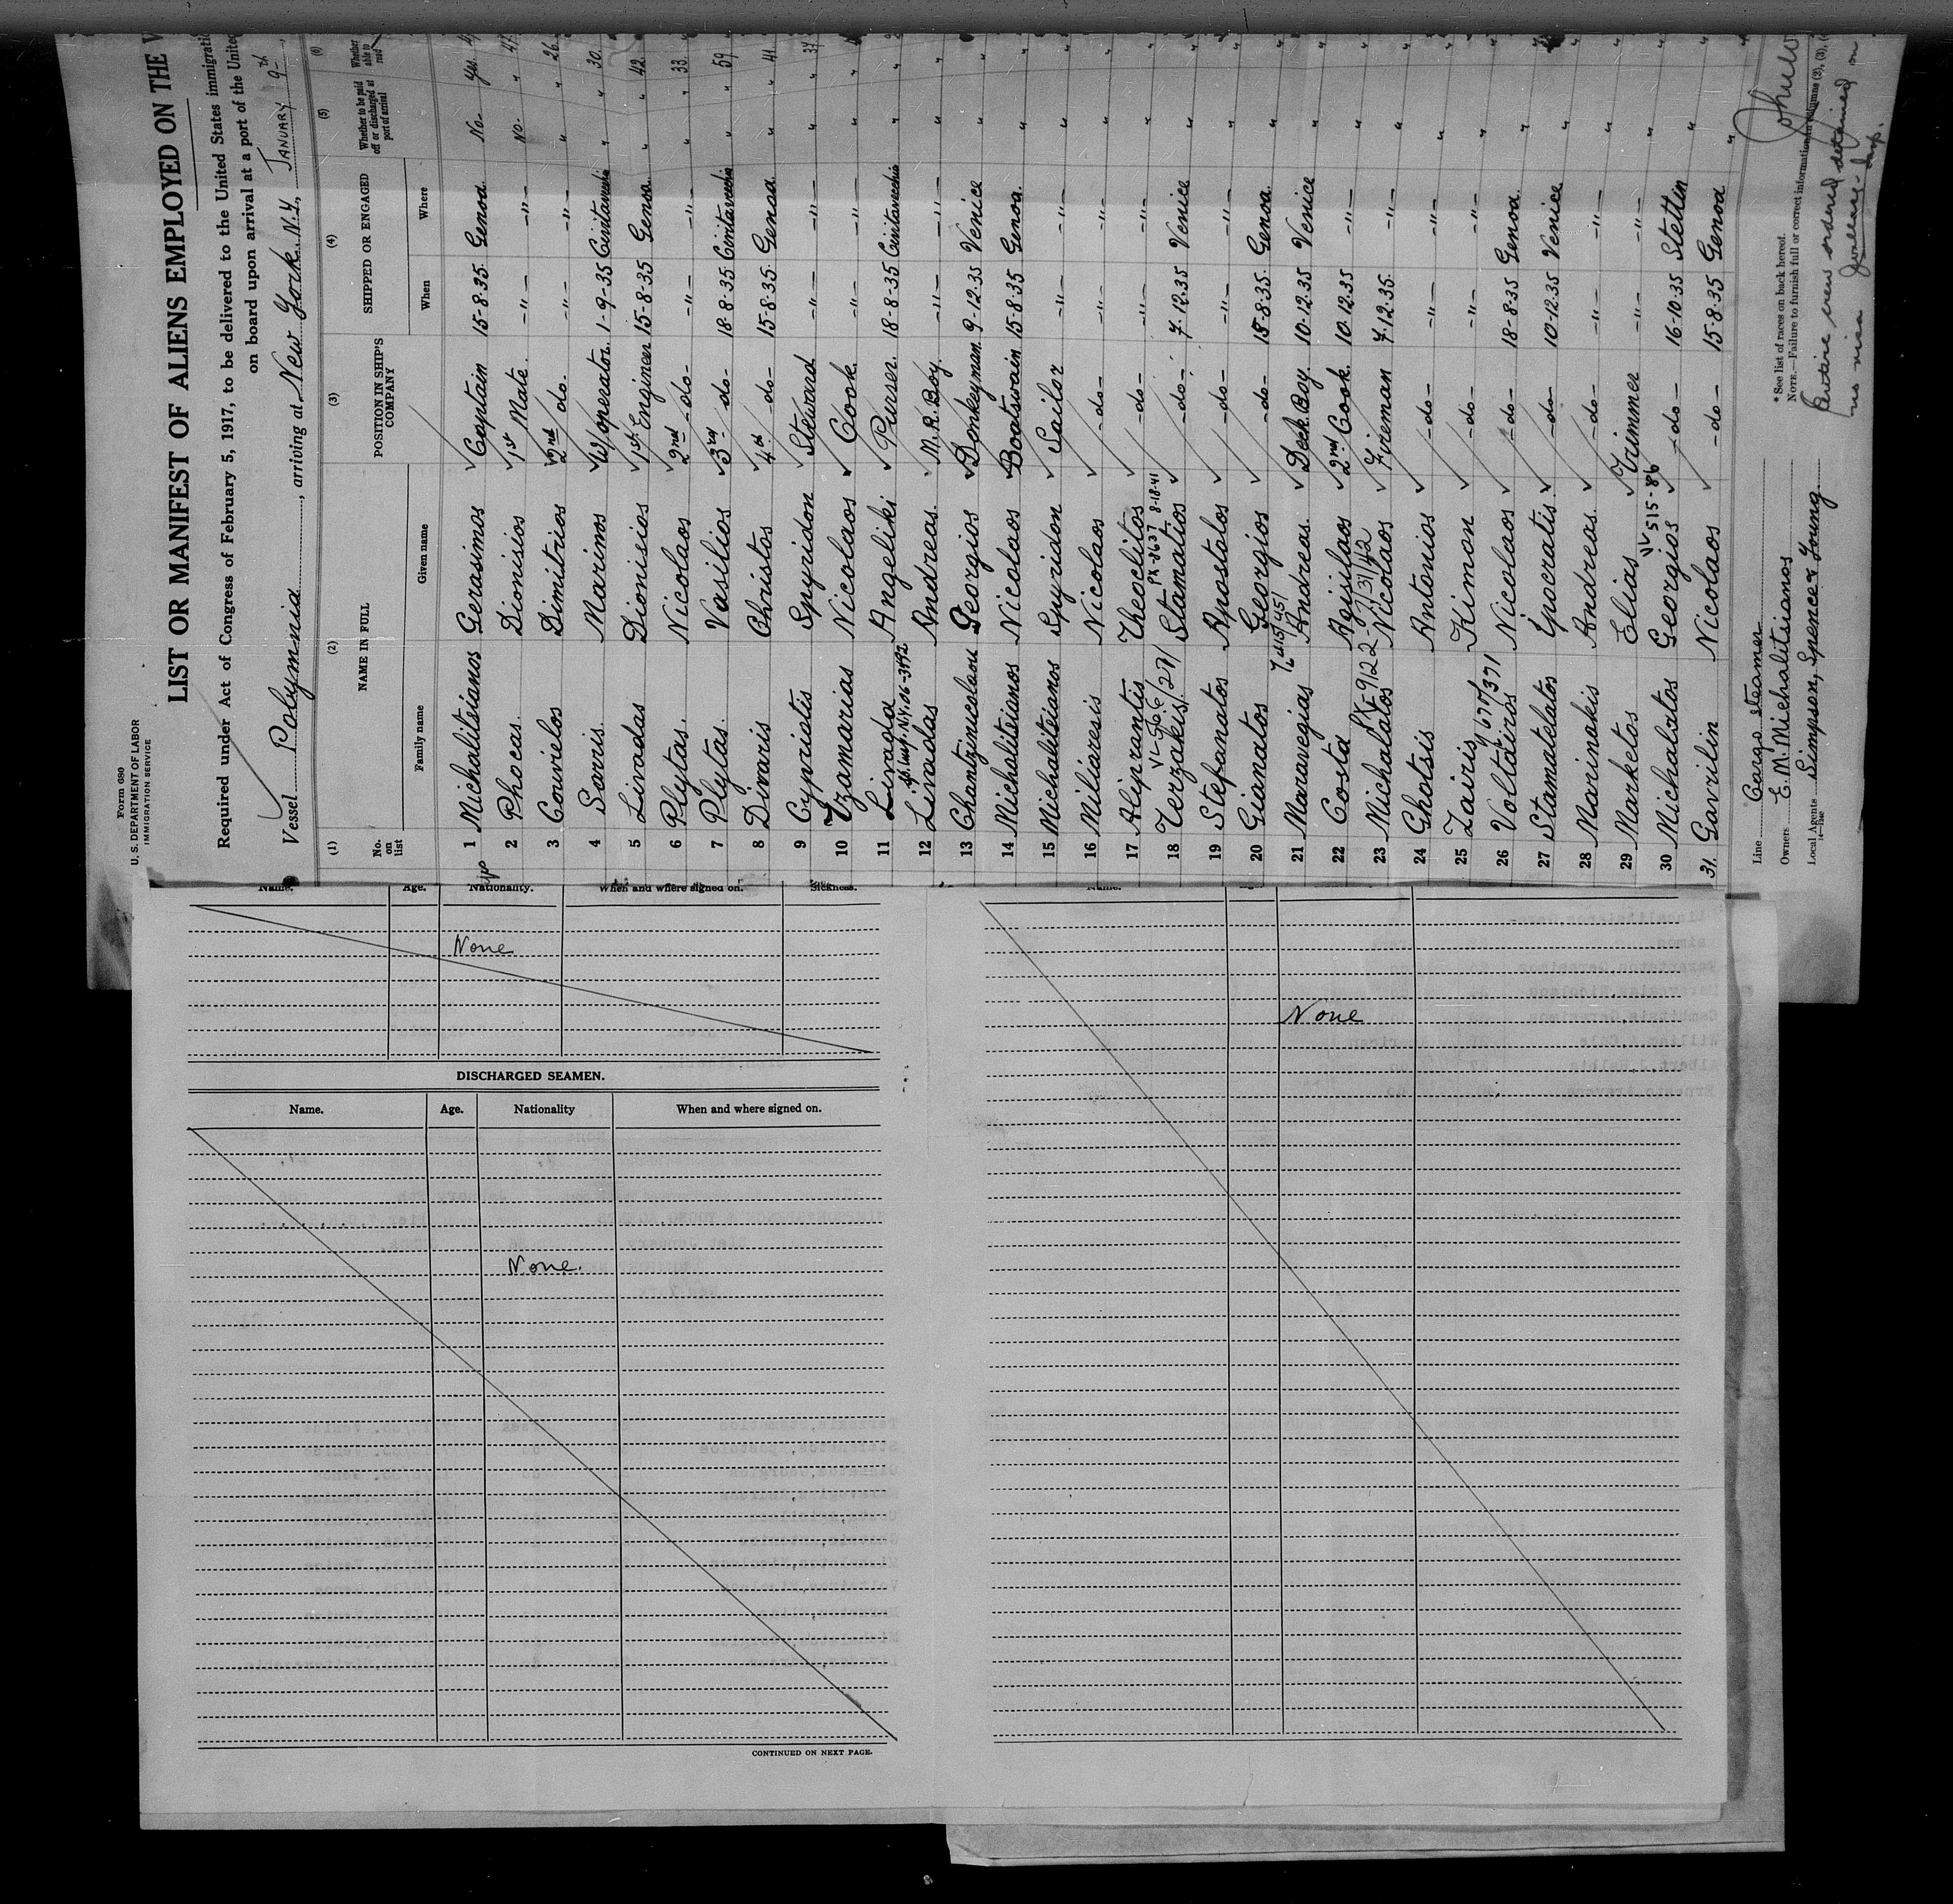 Form 680
U. S. DEPARTMENT OF LABOR
IMMIGRATION SERVICE
LIST OR MANIFEST OF ALIENS EMPLOYED ON THE V
Required under Act of Congress of February 5, 1917, to be delivered to the United States immigratio
on board upon arrival at a port of the United
Vessel Polymnia, arriving at New York. N.Y. JANUARY 9th
(1) (2) (3) (4) (5) (6)
No. on list NAME IN FULL POSITION IN SHIP'S COMPANY SHIPPED OR ENGAGED Whether to be paid off or discharged at port of arrival Whether able to read
Family name Given name When Where
1 Michalitsianos Gerasimos Captain 15-8-35. Genoa. No- yes.
2 Phoccas. Dionisios 1st Mate. -"- -"- No. " 47.
3 Courielos Dimitrios 2nd do. -"- -"- " " 26.
4 Sarris. Marinos W/operator. 1-9-35 Civitavecchia " " 30.
5 Livadas Dionisios 1st Engineer 15-8-35 Genoa. " " 42.
6 Plytas. Nicolaos 2nd -do- -"- -"- " " 33.
7 Plytas. Vasilios 3rd -do- 18-8-35 Civitavecchia " " 59
8 Divaris Christos 4th -do- 15-8-35. Genoa. " " 41.
9 Cypriotis Spyridon Steward -"- -"- " " 37
10 Tzamarias Nicolaos Cook. -"- -"- " "
11 Livada Angeliki Purser. 18-8-35 Civitavecchia " "
12 Livadas Andreas. M.R.Boy. -"- -"- " "
13 Chantzinicolaou Georgios Donkeyman. 9-12-35 Venice " "
14 Michalitsianos Nicolaos Boatswain 15-8-35 Genoa. " "
15 Michalitsianos Spyridon Sailor -"- -"- " "
16 Miliaresis Nicolaos -do- -"- -"- " "
17 Alipranti​s Theoclitos -do- -"- -"- " "
PX-8637 8-18-41
18 Terzakis. Stamatios -do- 7-12-35 Venice " "
19 Stefanatos Apostolos -do- -"- -"- " "
20 Gianatos Georgios -do- 18-8-35. Genoa. " "
21 Maravegias Andreas. Deck.Boy. 10-12-35 Venice " "
22 Costa Agisilaos 2nd Cook. 10-12-35 -"- " "
23 Michalatos Nicolaos Fireman 7-12-35. -"- " "
24 Ghotsis Antonios -do- -"- -"- " "
25 Zairis Kimon -do- -"- -"- " "
26 Voltairos Nicolaos -do- 18-8-35 Genoa. " "
27 Stamatelatos Ipocratis. -do- 10-12-35 Venice " "
28 Marinakis Andreas. -do- -"- -"- " "
29 Marketos Elias Trimmer -"- -"- " "
30 Michalatos Georgios -do- 16-10-35 Stettin " "
31. Gavrilin Nicolaos -do- 15-8-35 Genoa " "
Line Cargo steamer
Owners E.M. Michalitsianos
Local Agents Simpson, Spence & Young
*See list of races on back hereof.
NOTE.—Failure to furnish full or correct information in columns (2), (3),
Entire crew ordered detained on
no visa
Insp.
Name. Age. Nationality. When and where signed on. Sickness.
None
DISCHARGED SEAMEN.
Name. Age. Nationality When and where signed on.
None.
CONTINUED ON NEXT PAGE.
Name.
None